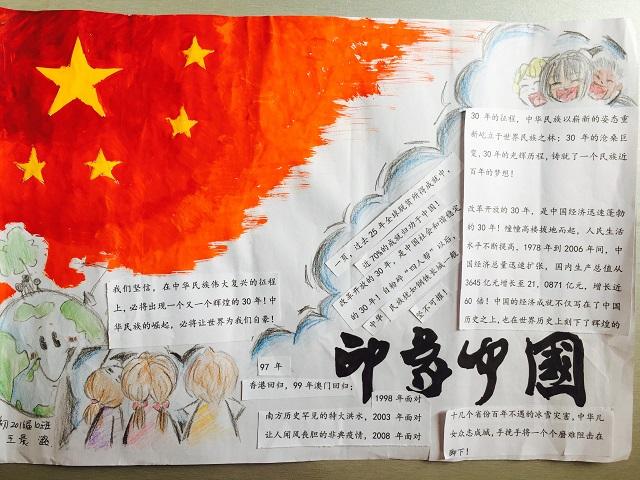 30 年的征程，中华民族以崭新的姿态重
新屹立于世界民族之林；30 年的沧桑巨
变，30 年的光辉历程，铸就了一个民族近
百年的梦想！
改革开放的 30 年，是中国经济迅速蓬勃
的 30 年！幢幢高楼拔地而起，人民生活
水平不断提高，1978 年到 2006 年间，中
国经济总量迅速扩张，国内生产总值从
3645 亿元增长至 21，0871 亿元，增长近
60 倍！中国的经济成就不仅写在了中国
历史之上，也在世界历史上刻下了辉煌的
一页，过去 25 年全球脱贫所得成就中，
近 70%的成就归功于中国！
改革开放的 30 年，是中国社会和谐稳定
的 30 年！自粉碎“四人帮”以后，
中华民族便如钢铁长城一般
坚不可摧！
我们坚信，在中华民族伟大复兴的征程
上，必将出现一个又一个辉煌的 30 年！中
华民族的崛起，必将让世界为我们自豪！
印象中国
97 年
香港回归，99 年澳门回归；
1998 年面对
南方历史罕见的特大洪水，2003 年面对
让人闻风丧胆的非典疫情，2008 年面对
十几个省份百年不遇的冰雪灾害，中华儿
女众志成城，手挽手将一个个磨难阻击在
脚下！
初2018届10班